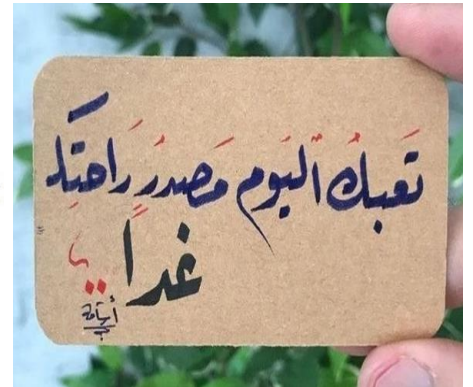 تَعبكُ اليَوم مَصدرُ رَاحتِك
غداً ..